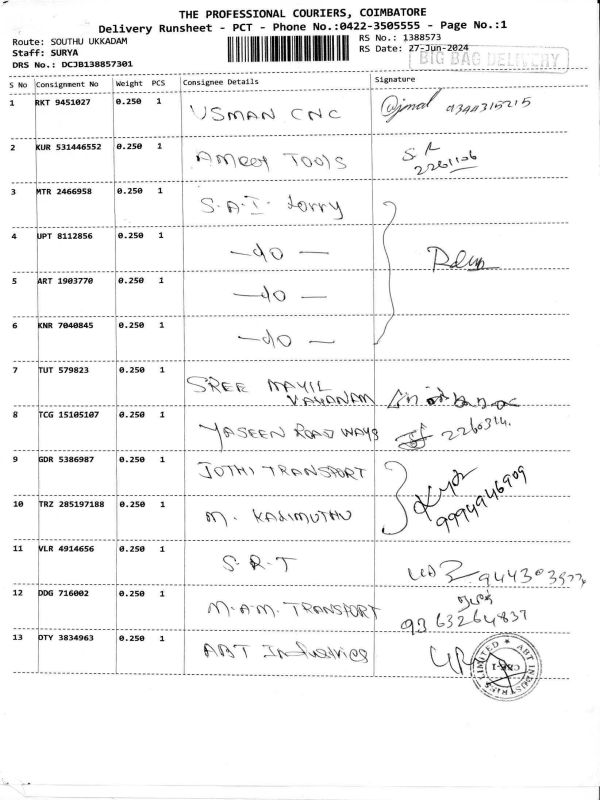 THE PROFESSIONAL COURIERS, COIMBATORE
Delivery Runsheet - PCT - Phone No.:0422-3505555 - Page No.:1
Route: SOUTHU UKKADAM
RS No.: 1388573
Staff: SURYA
RS Date: 27-Jun-2024
DRS No.: DCJB138857301
BIG BAG DELIVERY
S No Consignment No Weight PCS Consignee Details Signature
1 RKT 9451027 0.250 1 USMAN CNC
2 KUR 531446552 0.250 1 Ameer Tools
2261106
3 MTR 2466958 0.250 1 S.A.I. Lorry
4 UPT 8112856 0.250 1 —do—
5 ART 1903770 0.250 1 —do—
6 KNR 7040845 0.250 1 —do—
7 TUT 579823 0.250 1 SREE MAYIL
VAHANAM
8 TCG 15105107 0.250 1 YASEEN ROAD WAYS 2260314.
9 GDR 5386987 0.250 1 JOTHI TRANSPORT
9994946909
10 TRZ 285197188 0.250 1 M. KALIMUTHU
11 VLR 4914656 0.250 1 S.R.T
12 DDG 716002 0.250 1 M.A.M. TRANSPORT 9363264837
13 OTY 3834963 0.250 1 ABT Industries
ABT INDUSTRIES LIMITED